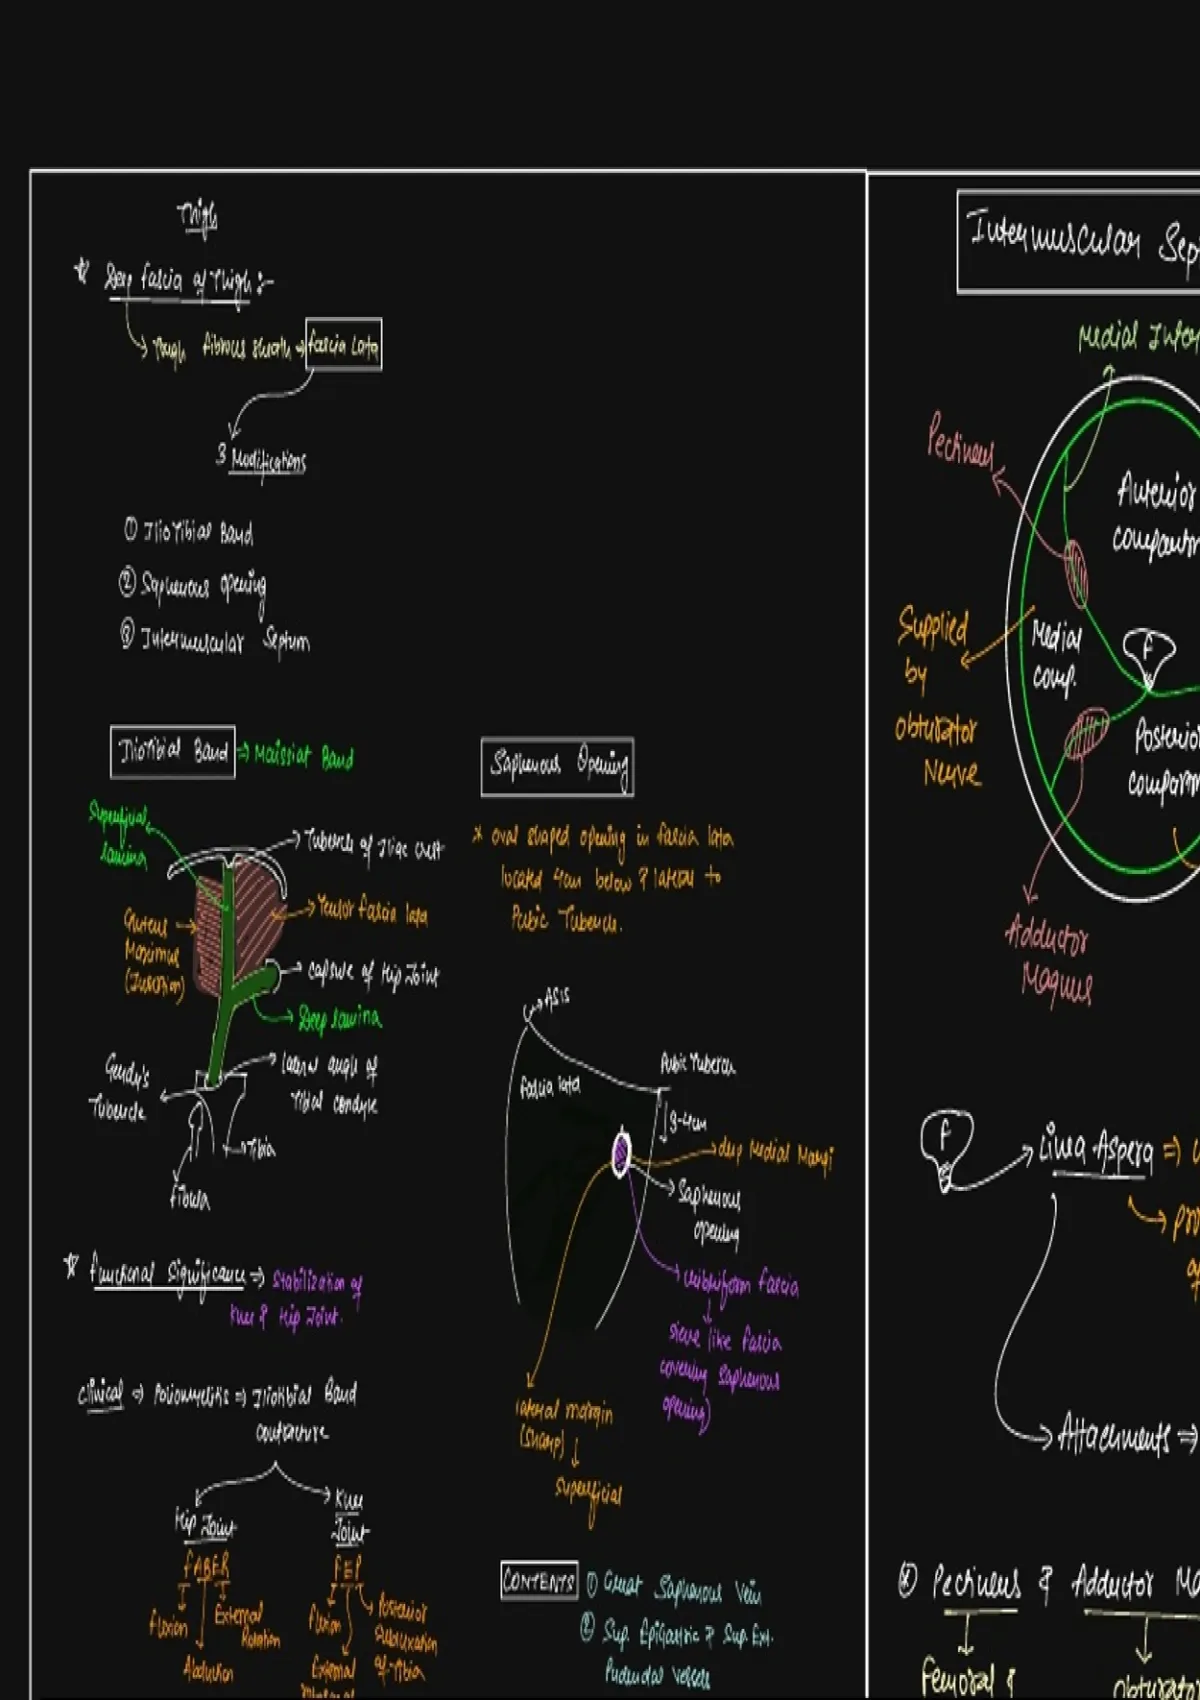 Thigh
☆ Deep fascia of Thigh :-
↳ Tough fibrous sheath → fascia Lata
3 Modifications
① IlioTibial Band
② Saphenous opening
③ Intermuscular Septum
IlioTibial Band ⇒ Maissiat Band
Superficial
lamina
Tubercle of Iliac crest
Gluteus
Maximus
(Insertion)
Tensor fascia lata
capsule of Hip Joint
Deep lamina
Gerdy's
Tubercle
lateral angle of
Tibial condyle
Tibia
fibula
☆ functional significance ⇒ Stabilization of
Knee & Hip Joint.
Clinical ⇒ Poliomyelitis ⇒ Iliotibial Band
contracture
Hip Joint
FABER
flexion
External
Rotation
Abduction
Knee
Joint
FEP
flexion
Posterior
subluxation
of Tibia
External
Saphenous Opening
* oval shaped opening in fascia lata
located 4cm below & lateral to
Pubic Tubercle.
ASIS
Pubic Tubercle
fascia lata
3-4cm
deep Medial Margi
Saphenous
opening
cribriform fascia
sieve like fascia
covering saphenous
opening)
lateral margin
(sharp)
superficial
CONTENTS ① Great Saphenous Vein
② Sup. Epigastric & Sup. Ext.
Pudendal vessels
Intermuscular Sep
Medial Inter
Pectineus
Anterior
compartm
Supplied
by
obturator
Nerve
Medial
comp.
f
Posterio
compartm
Adductor
Magnus
f
Linea Aspera ⇒
pro
of
Attachments ⇒
Pectineus & Adductor Ma
Femoral &
obturato